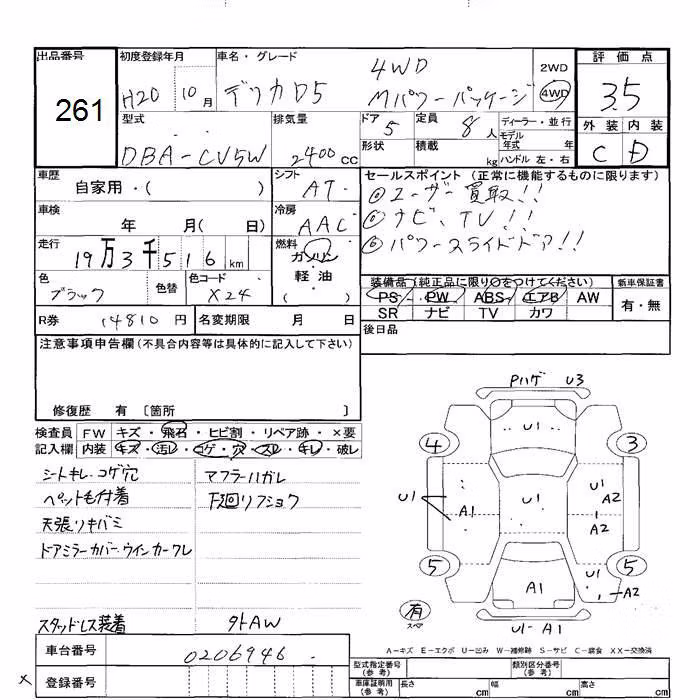 出品番号
261
初度登録年月
H20 10月
車名・グレード
デリカD5
4WD
Mパワーパッケージ
2WD
4WD
評価点
3.5
外装 内装
C D
型式
DBA-CV5W
排気量
2400cc
ドア
5
定員
8人
ディーラー・並行
モデル
年式 年
形状
積載 kg
ハンドル 左・右
車歴
自家用・( )
シフト
AT
セールスポイント(正常に機能するものに限ります)
◎ユーザー買取!!
◎ナビ、TV!!
◎パワースライドドア!!
車検
年 月( 日)
冷房
AAC
走行
19万3千516km
燃料
ガソリン
軽油
( )
色
ブラック
色替
色コード
X24
装備品(純正品に限り○をつけてください)
PS PW ABS エアB AW
SR ナビ TV カワ
新車保証書
有・無
R券 14810円
名変期限 月 日
後日品
注意事項申告欄(不具合内容等は具体的に記入して下さい)
修復歴 有〔箇所 〕
検査員 FW キズ・飛石・ヒビ割・リペア跡・×要
記入欄 内装 キズ・汚レ・コゲ・穴・スレ・キレ・破レ
シートキレ・コゲ穴
マフラーハガレ
ペット毛付着
下廻リフショク
天張リキバミ
ドアミラーカバー・ウインカーワレ
スタッドレス装着
外AW
Pハゲ U3
U1
4
3
U1
A1
U1
U1
A2
A2
5
5
A1
U1
A2
有
スペア
U1-A1
A-キズ E-エクボ U-凹み W-補修跡 S-サビ C-腐食 XX-交換済
車台番号
0206946
× 登録番号
型式指定番号
(参考)
類別区分番号
(参考)
車庫証明用
(参考)
長さ cm
幅 cm
高さ cm